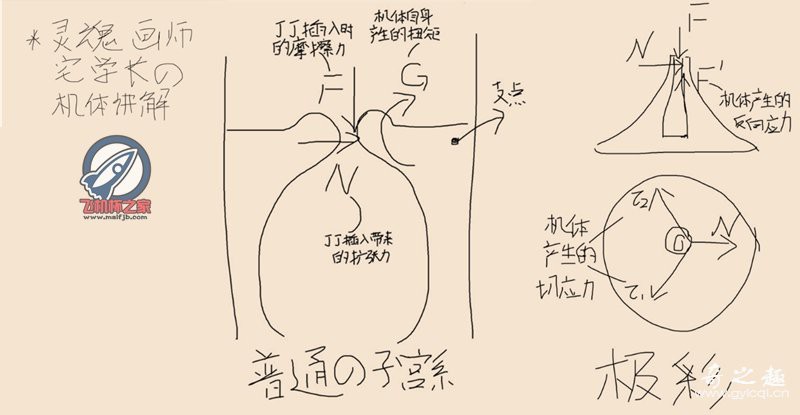 *灵魂画师
宅学长の
机体讲解
飞机杯之家
www.maifjb.com
JJ插入时
的摩擦力
F
机体自身
产生的扭矩
G
支点
N
JJ插入带来
的扩张力
普通の子宫系
F
N
F'
机体产生的
反向应力
机体
产生的
切应力
τ2
τ1
N
极彩